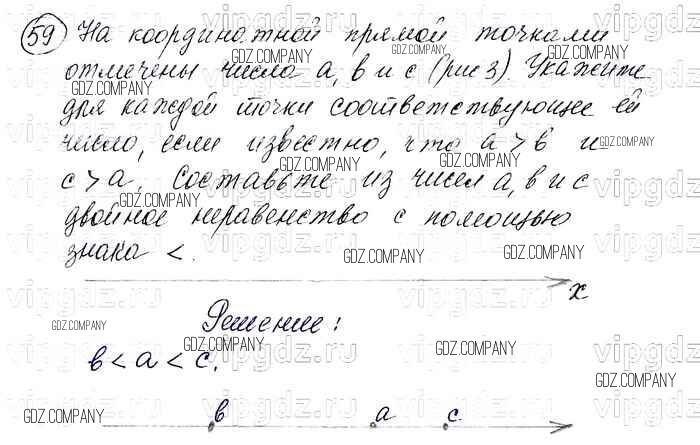 59 На координатной прямой точками
отмечены числа а, в и с (рис 3). Укажите
для каждой точки соответствующее ей
число, если известно, что а > в и
с > а. Составьте из чисел а, в и с
двойное неравенство с помощью
знака <.
x
Решение:
в < а < с.
в а с